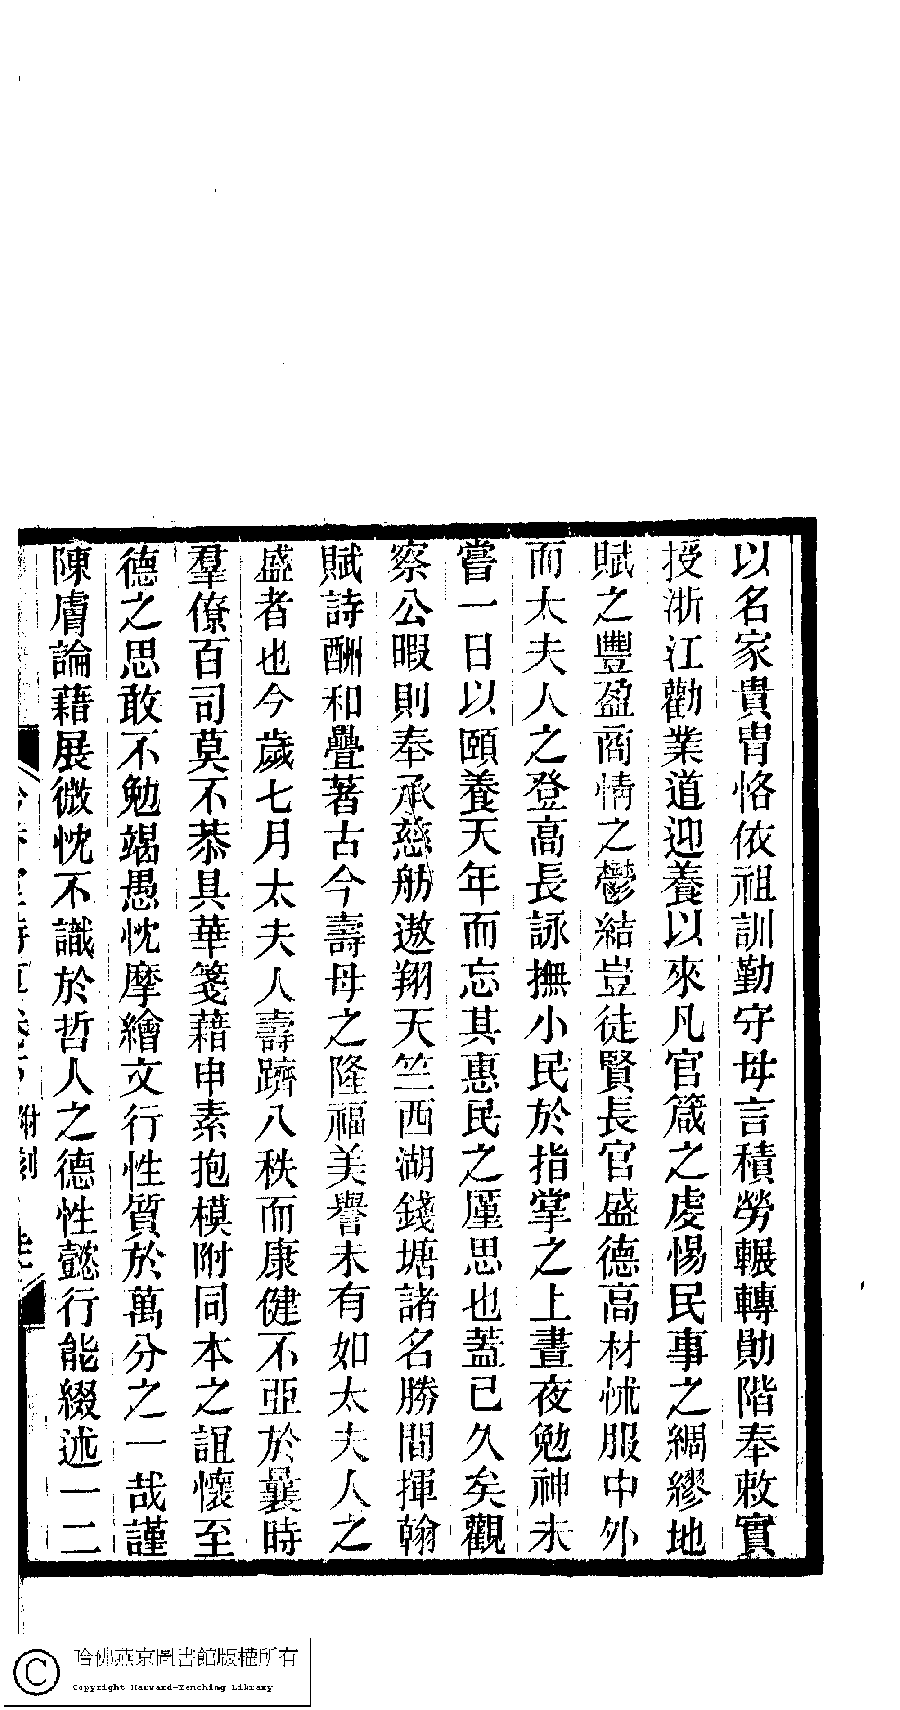 以名家貴冑恪依祖訓勤守母言積勞輾轉勛階奉敕實
授浙江勸業道迎養以來凡官箴之虔惕民事之綢繆地
賦之豐盈商情之鬱結豈徒賢長官盛德高材怵服中外
而太夫人之登高長詠撫小民於指掌之上晝夜勉神未
嘗一日以頤養天年而忘其惠民之厪思也蓋已久矣觀
察公暇則奉承慈舫遨翔天竺西湖錢塘諸名勝間揮翰
賦詩酬和疊著古今壽母之隆福美譽未有如太夫人之
盛者也今歲七月太夫人壽躋八秩而康健不亞於曩時
羣僚百司莫不恭具華箋藉申素抱模附同本之誼懷至
德之思敢不勉竭愚忱摩繪文行性質於萬分之一哉謹
陳膚論藉展微忱不識於哲人之德性懿行能綴述一二
附刻
哈佛燕京圖書館版權所有
Copyright Harvard-Yenching Library